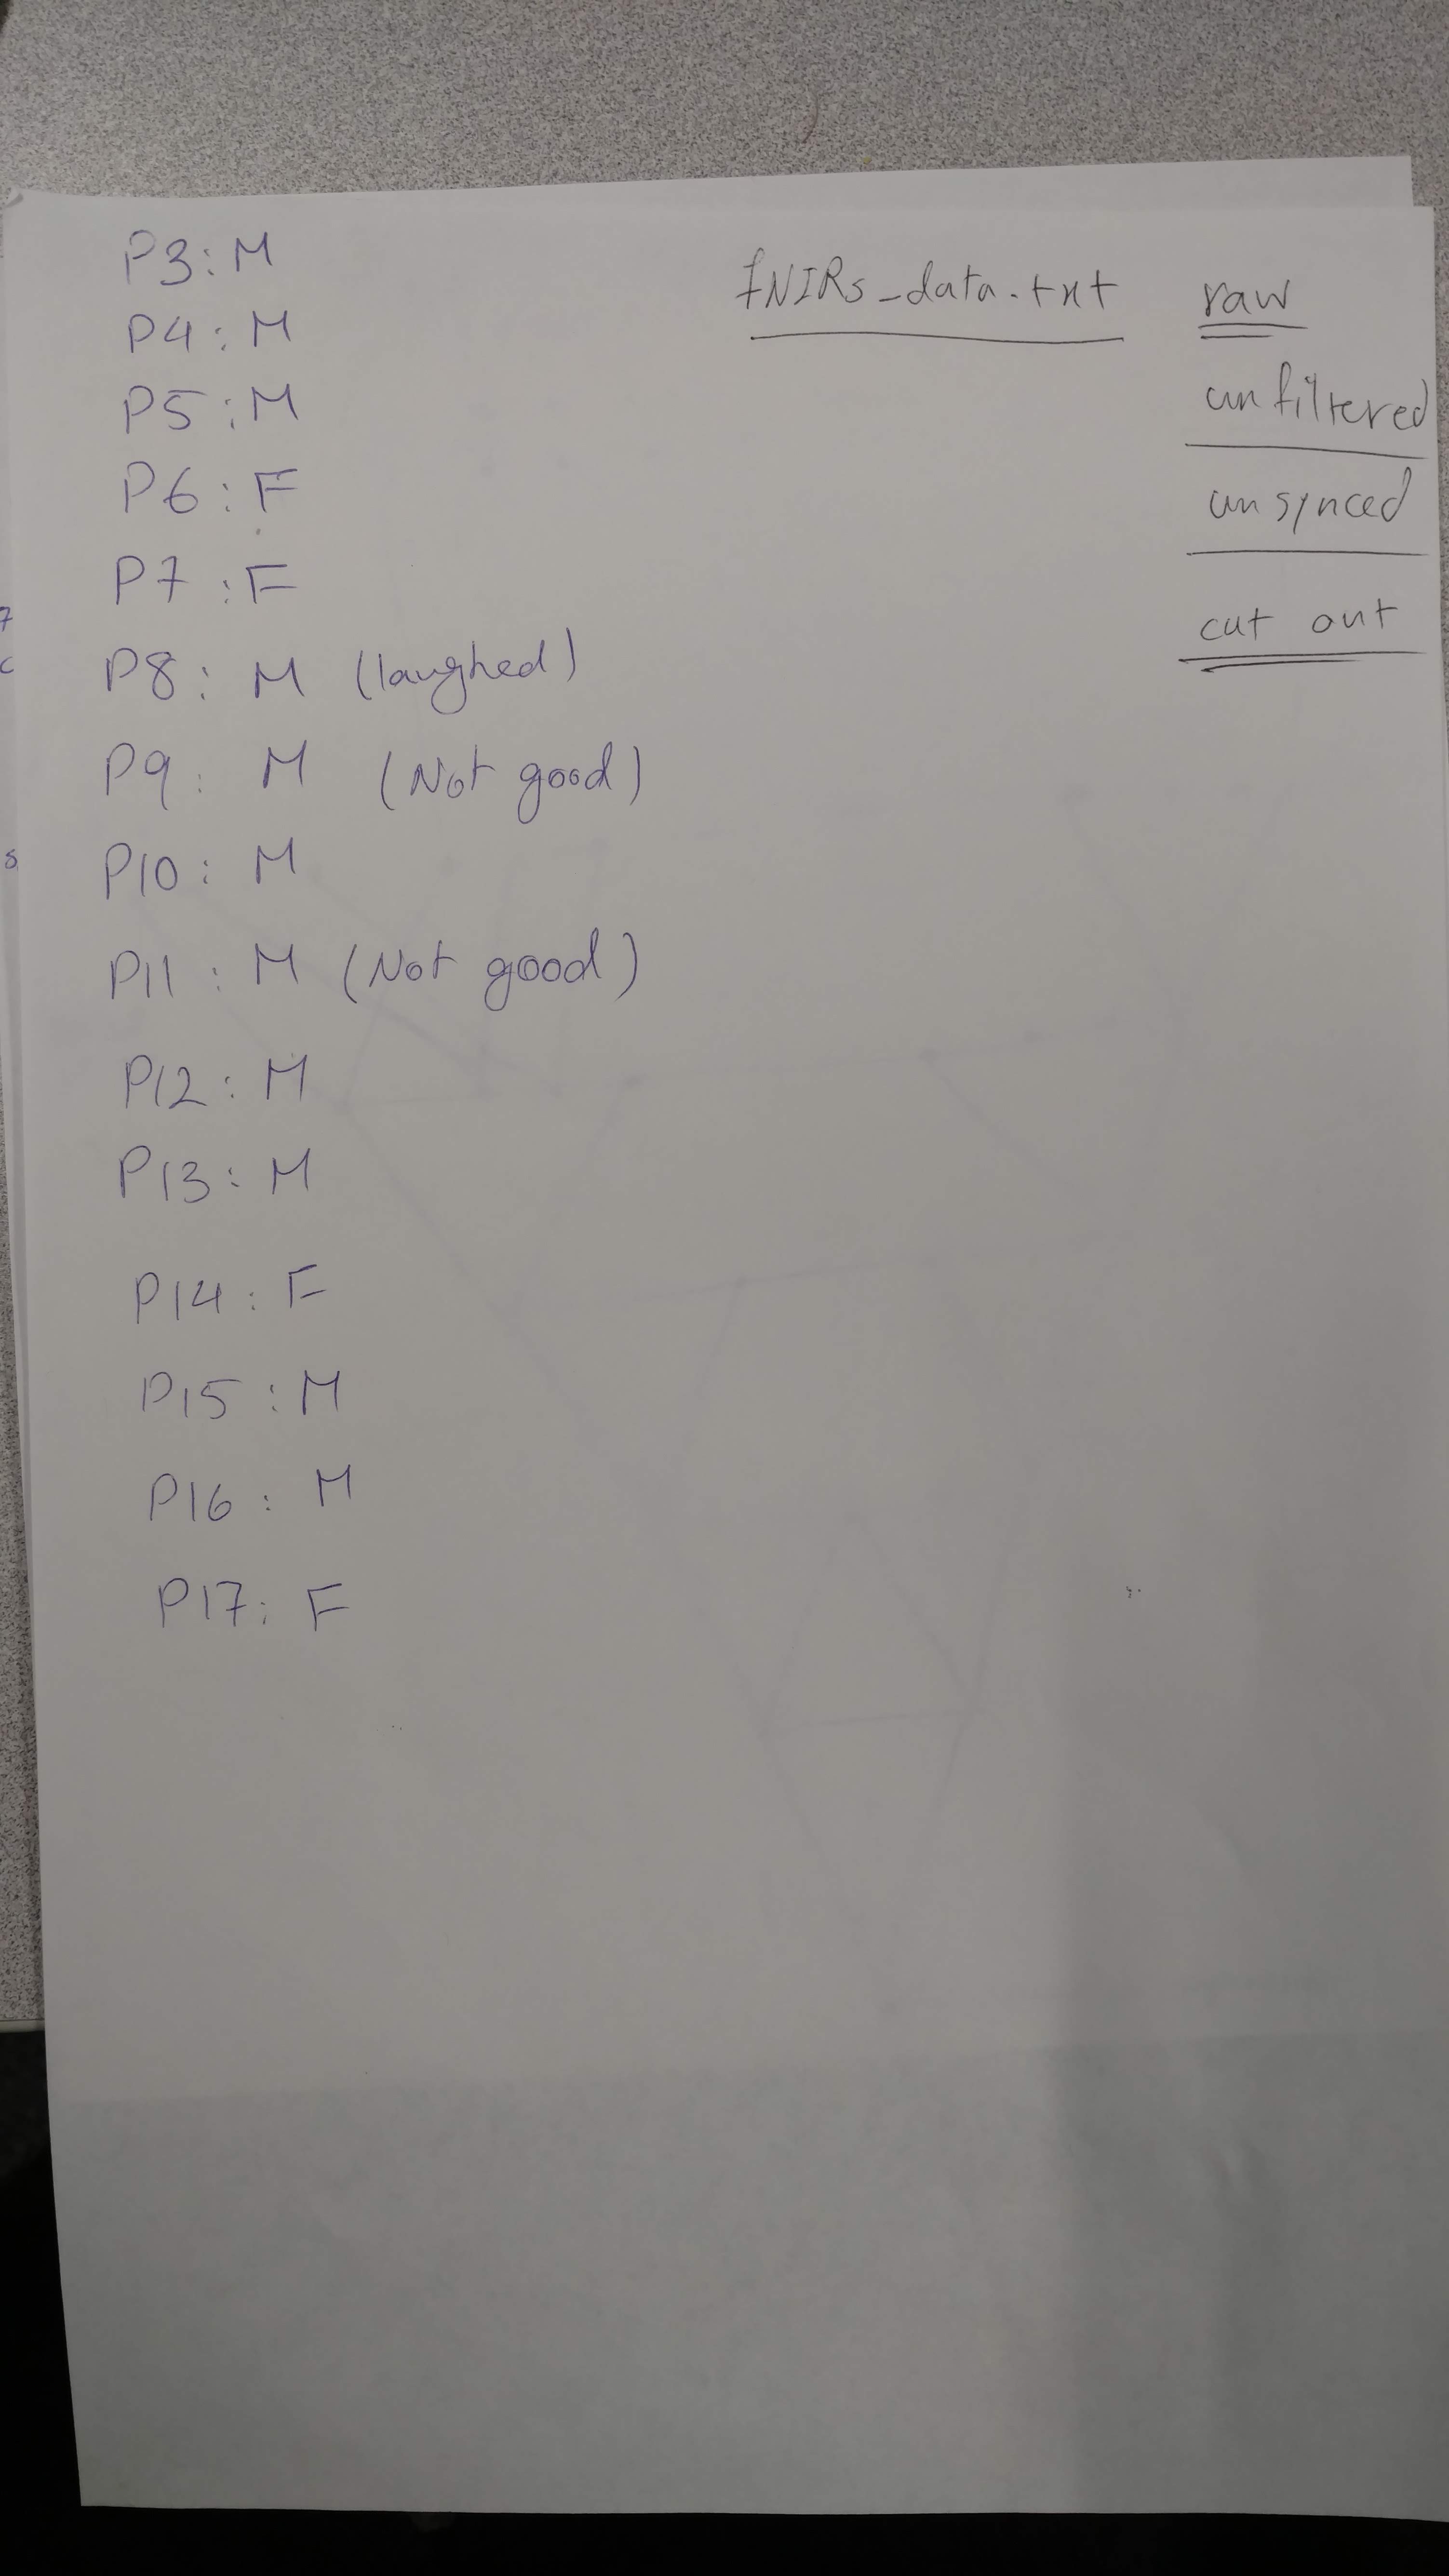 P3: M
P4: M
P5: M
P6: F
P7: F
P8: M (laughed)
P9: M (Not good)
P10: M
P11: M (Not good)
P12: M
P13: M
P14: F
P15: M
P16: M
P17: F
fNIRs_data.txt raw
unfiltered
unsynced
cut out